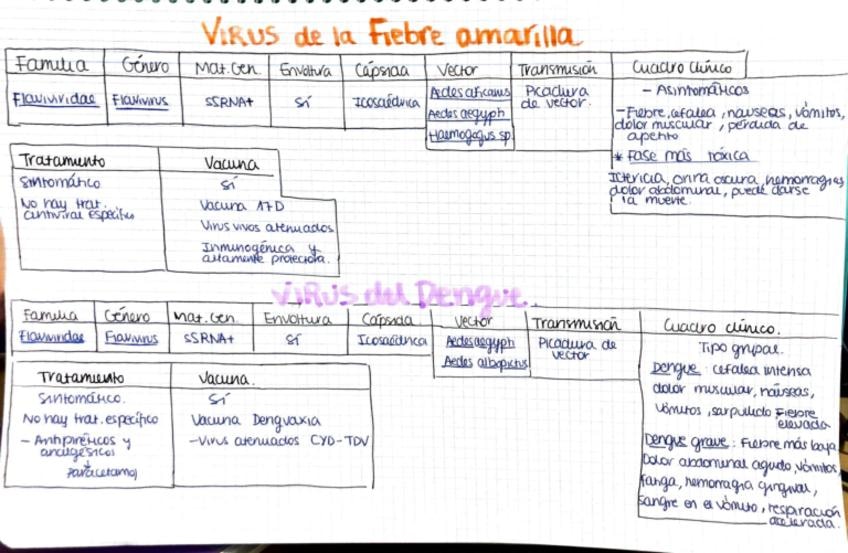 VIRUS de la Fiebre amarilla
Familia Género Mat. Gen. Envoltura Cápsida Vector Transmisión Cuadro clínico
Flaviviridae Flavivirus SSRNA+ Sí Icosaédrica Aedes africanus Picadura de vector.
Aedes aegypti
Haemogogus sp.
- Asintomáticos
- Fiebre, cefalea, nauseas, vómitos,
dolor muscular, pérdida de
apetito
* Fase más tóxica
Ictericia, orina oscura, hemorragias
dolor abdominal, puede darse
la muerte.
Tratamiento Vacuna
Sintomático Sí
No hay trat. Vacuna 17D
antiviral específico Virus vivos atenuados
Inmunogénica y
altamente protectora.
Virus del Dengue.
Familia Género Mat. Gen. Envoltura Cápsida Vector Transmisión Cuadro clínico.
Flaviviridae Flavivirus SSRNA+ Sí Icosaédrica Aedes aegypti Picadura de
Aedes albopictus vector
Tipo gripal.
Dengue: cefalea intensa
dolor muscular, náuseas,
vómitos, sarpullido Fiebre
elevada
Dengue grave: Fiebre más baja
Dolor abdominal agudo, vómitos,
fatiga, hemorragia gingival,
sangre en el vómito, respiración
acelerada.
Tratamiento Vacuna.
Sintomático. Sí
No hay trat. específico Vacuna Dengvaxia
- Antipiréticos y - Virus atenuados CYD-TDV
analgésicos
↓
Paracetamol